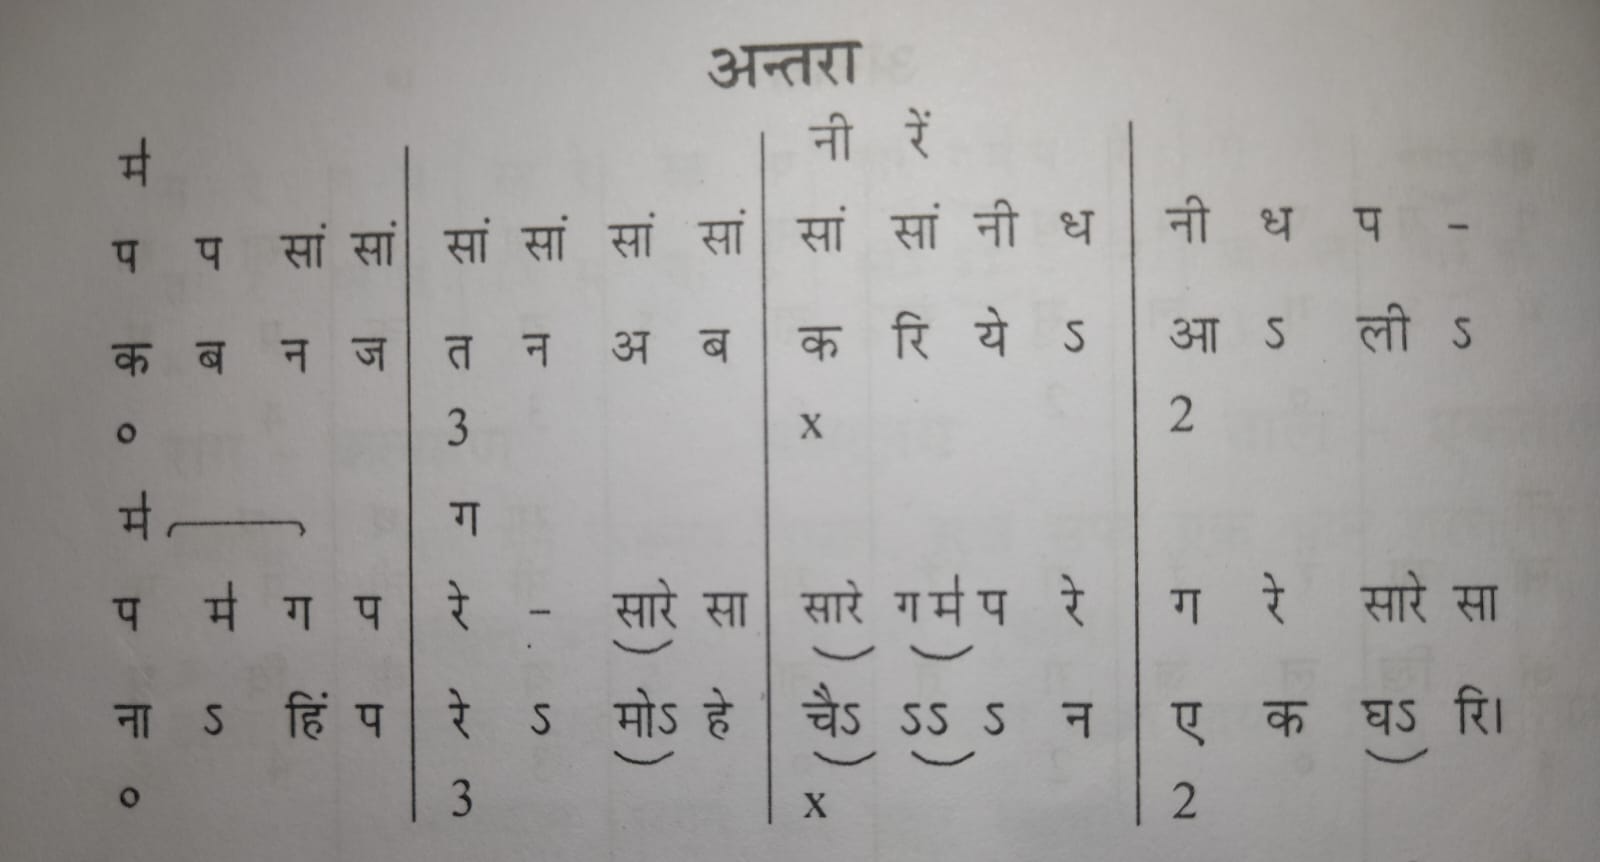 अन्तरा
र्म नी रें
प प सां सां सां सां सां सां सां सां नी ध नी ध प -
क ब न ज त न अ ब क रि ये ऽ आ ऽ ली ऽ
० 3 x 2
र्म ग
प र्म ग प रे - सारे सा सारे गर्म प रे ग रे सारे सा
ना ऽ हिं प रे ऽ मोऽ हे चैऽ ऽऽ ऽ न ए क घऽ रि।
० 3 x 2